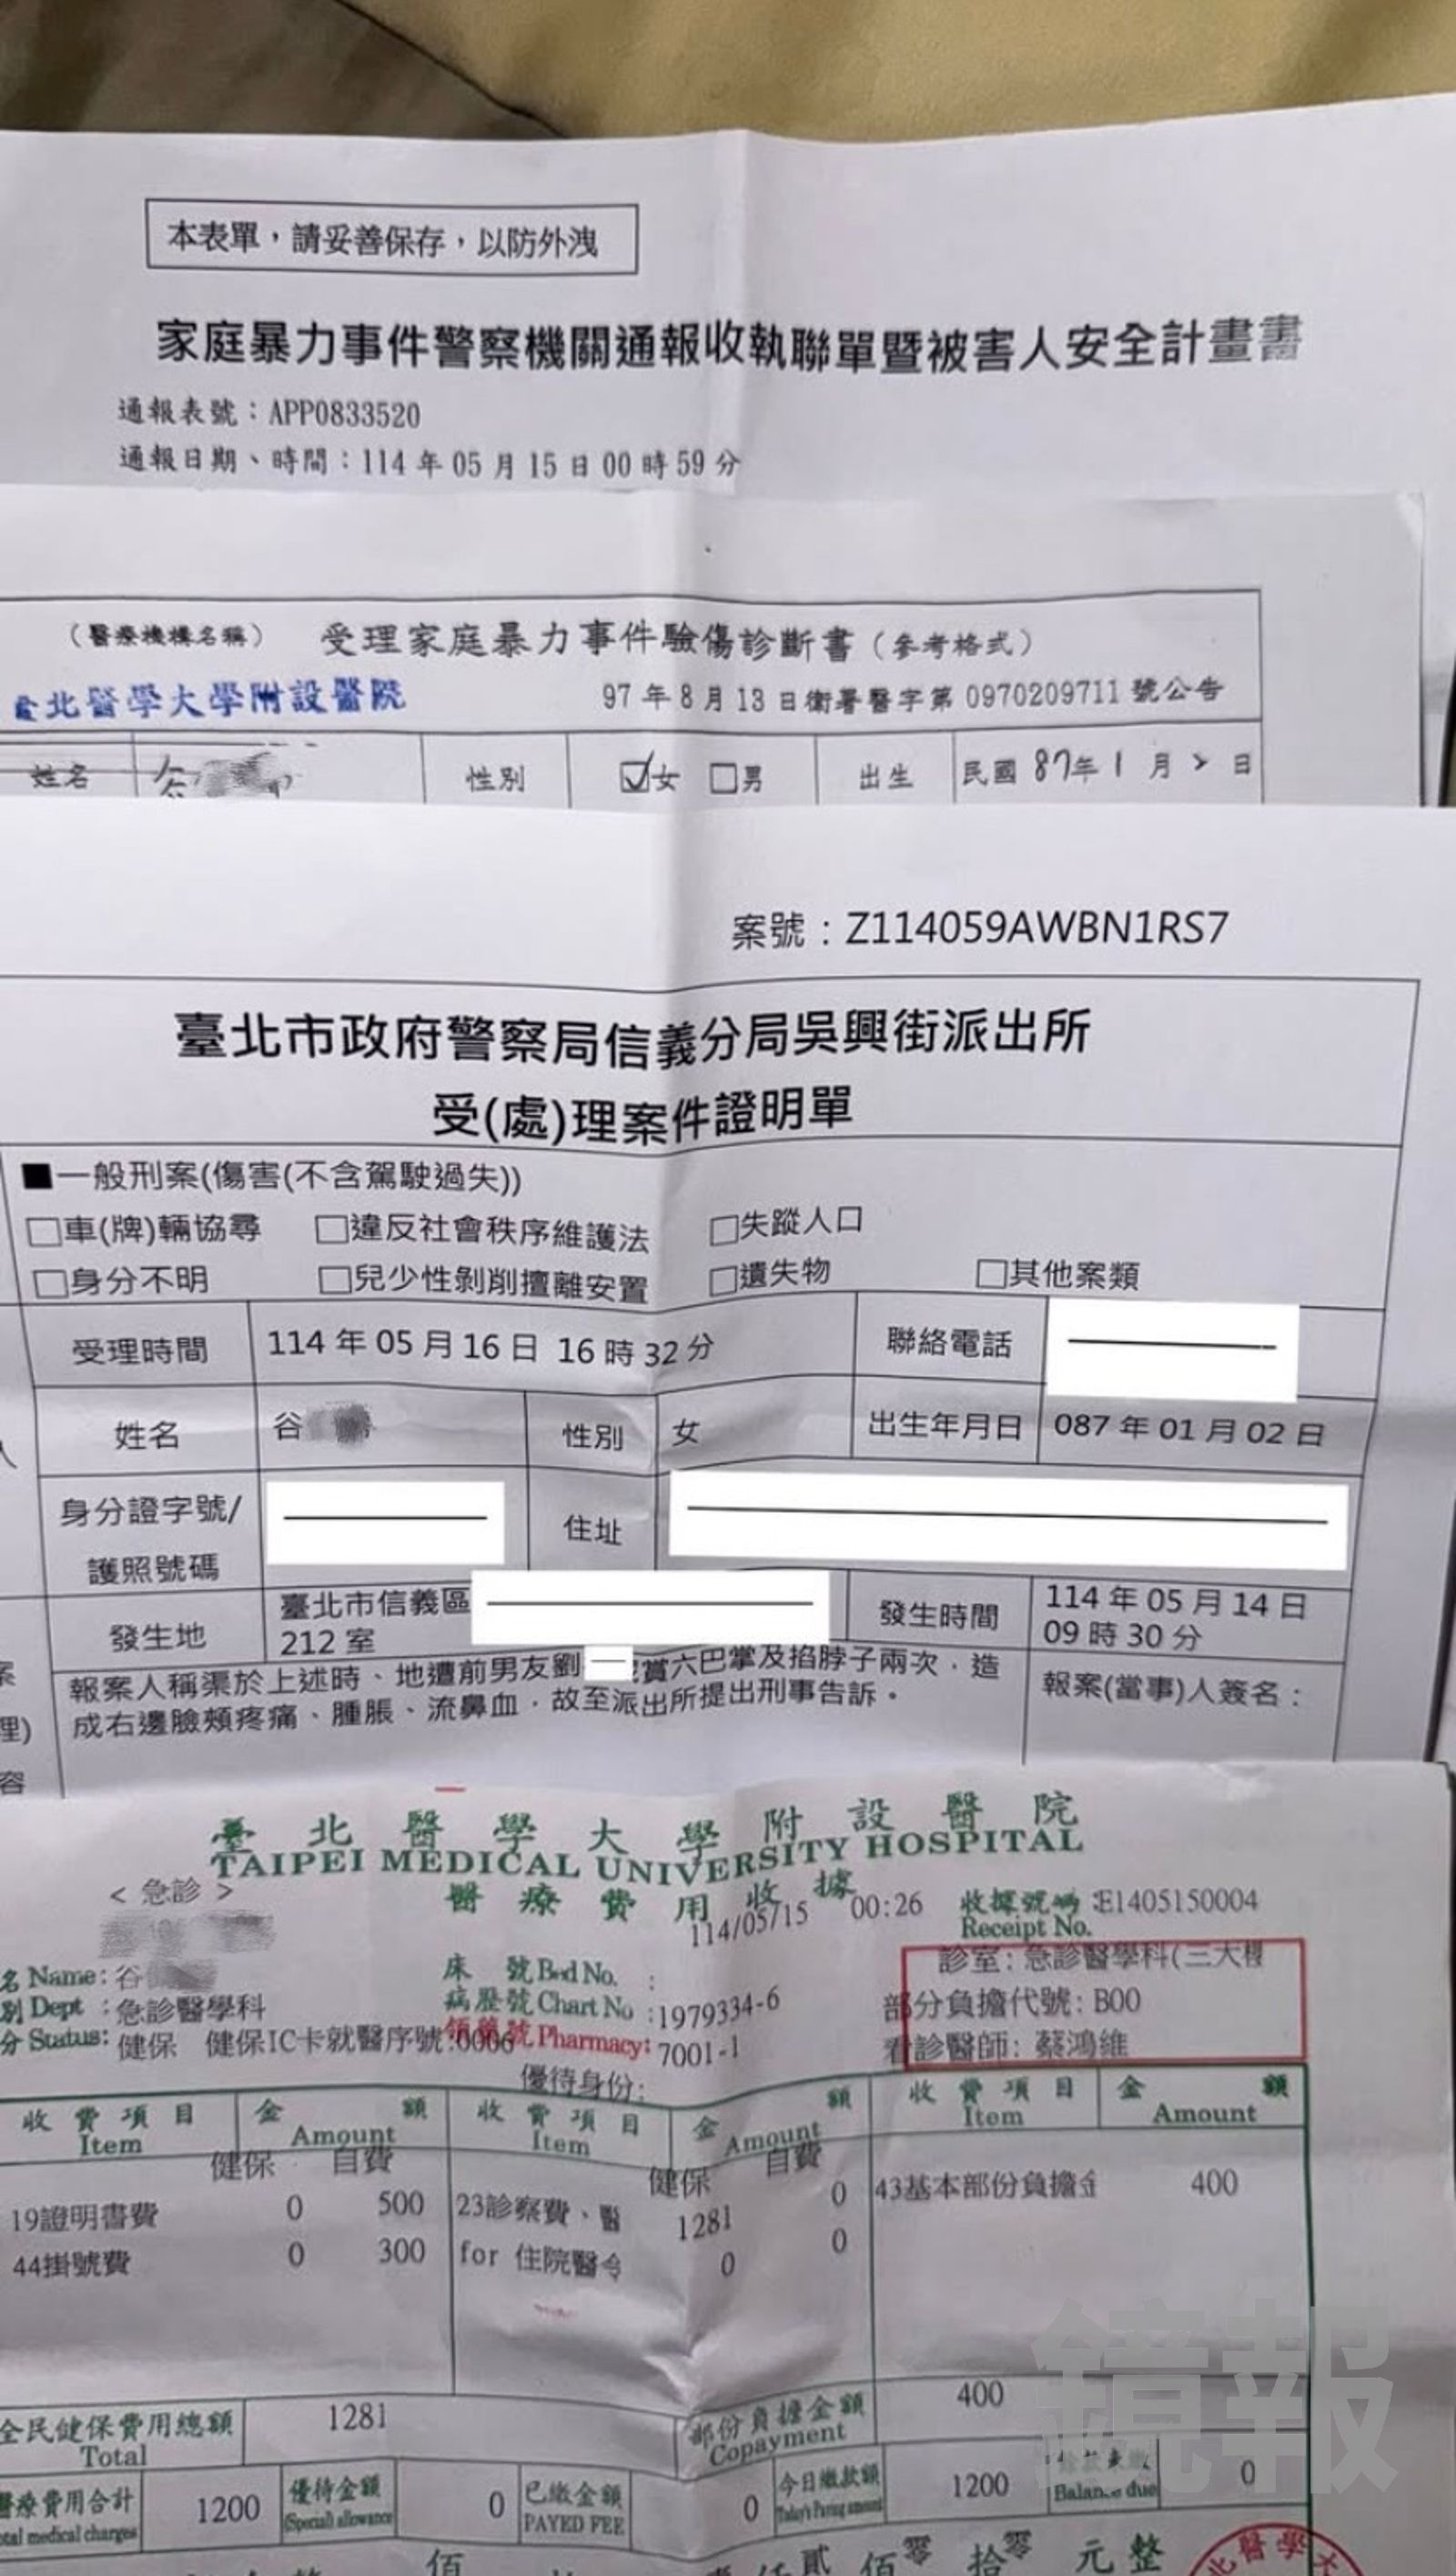 本表單，請妥善保存，以防外洩
家庭暴力事件警察機關通報收執聯單暨被害人安全計畫書
通報表號：APP0833520
通報日期、時間：114 年 05 月 15 日 00 時 59 分
（醫療機構名稱） 受理家庭暴力事件驗傷診斷書（參考格式）
北醫學大學附設醫院 97 年 8 月 13 日衛署醫字第 0970209711 號公告
姓名 谷 性別 ☑女 □男 出生 民國 87年 1 月 日
案號：Z114059AWBN1RS7
臺北市政府警察局信義分局吳興街派出所
受(處)理案件證明單
■一般刑案(傷害(不含駕駛過失))
□車(牌)輛協尋 □違反社會秩序維護法 □失蹤人口
□身分不明 □兒少性剝削擅離安置 □遺失物 □其他案類
受理時間 114 年 05 月 16 日 16 時 32 分 聯絡電話
姓名 谷 性別 女 出生年月日 087 年 01 月 02 日
身分證字號/
護照號碼 住址
發生地 臺北市信義區
212 室 發生時間 114 年 05 月 14 日
09 時 30 分
報案人稱渠於上述時、地遭前男友劉 賞六巴掌及掐脖子兩次，造
成右邊臉頰疼痛、腫脹、流鼻血，故至派出所提出刑事告訴。
報案(當事)人簽名：
理)
容
臺北醫學大學附設醫院
TAIPEI MEDICAL UNIVERSITY HOSPITAL
< 急診 > 醫療費用收據
114/05/15 00:26 收據號碼:E1405150004
Receipt No.
診室: 急診醫學科(三大樓
名 Name: 谷 床 號 Bed No. :
別 Dept : 急診醫學科 病歷號 Chart No :1979334-6 部分負擔代號: B00
分 Status: 健保 健保IC卡就醫序號:0006 領藥號 Pharmacy: 7001-1 看診醫師: 蔡鴻維
優待身份:
收費項目 金額 收費項目 金額 收費項目 金額
Item Amount Item Amount Item Amount
健保 自費 健保 自費
19證明書費 0 500 23診察費、醫 1281 0 43基本部份負擔金 400
44掛號費 0 300 for 住院醫令 0 0
全民健保費用總額 1281 部份負擔金額 400
Total Copayment
醫療費用合計 1200 優待金額 0 已繳金額 0 今日繳款額 1200 0
total medical charges (Special) allowance PAYED FEE Balance due
佰 貳 佰 零 拾 零 元 整
北醫學大
鏡報